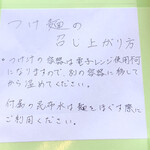 つけ麺の
召し上がり方
・つけ汁の容器は電子レンジ使用不可
になりますので、別の容器に移して
から温めてください。
付属の昆布水は麺をほぐす際に
ご利用ください。